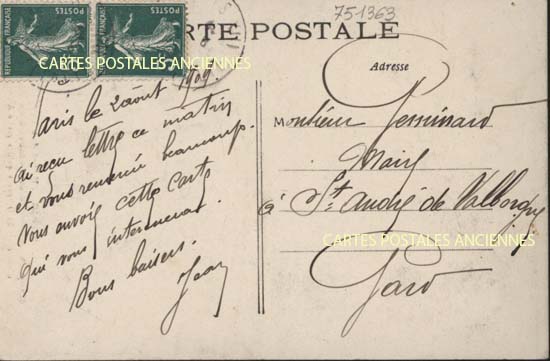 751363
CARTE POSTALE
REPUBLIQUE FRANÇAISE
REPUBLIQUE FRANÇAISE
CARTES POSTALES ANCIENNES
Adresse
Paris le 2 aout 1909.
ai reçu lettre ce matin
et vous remercie beaucoup.
Vous envoie cette carte
qui vous
Bons baisers.
Jean
Monsieur
Maire
à St. André de Valborgne
CARTES POSTALES ANCIENNES
Gard